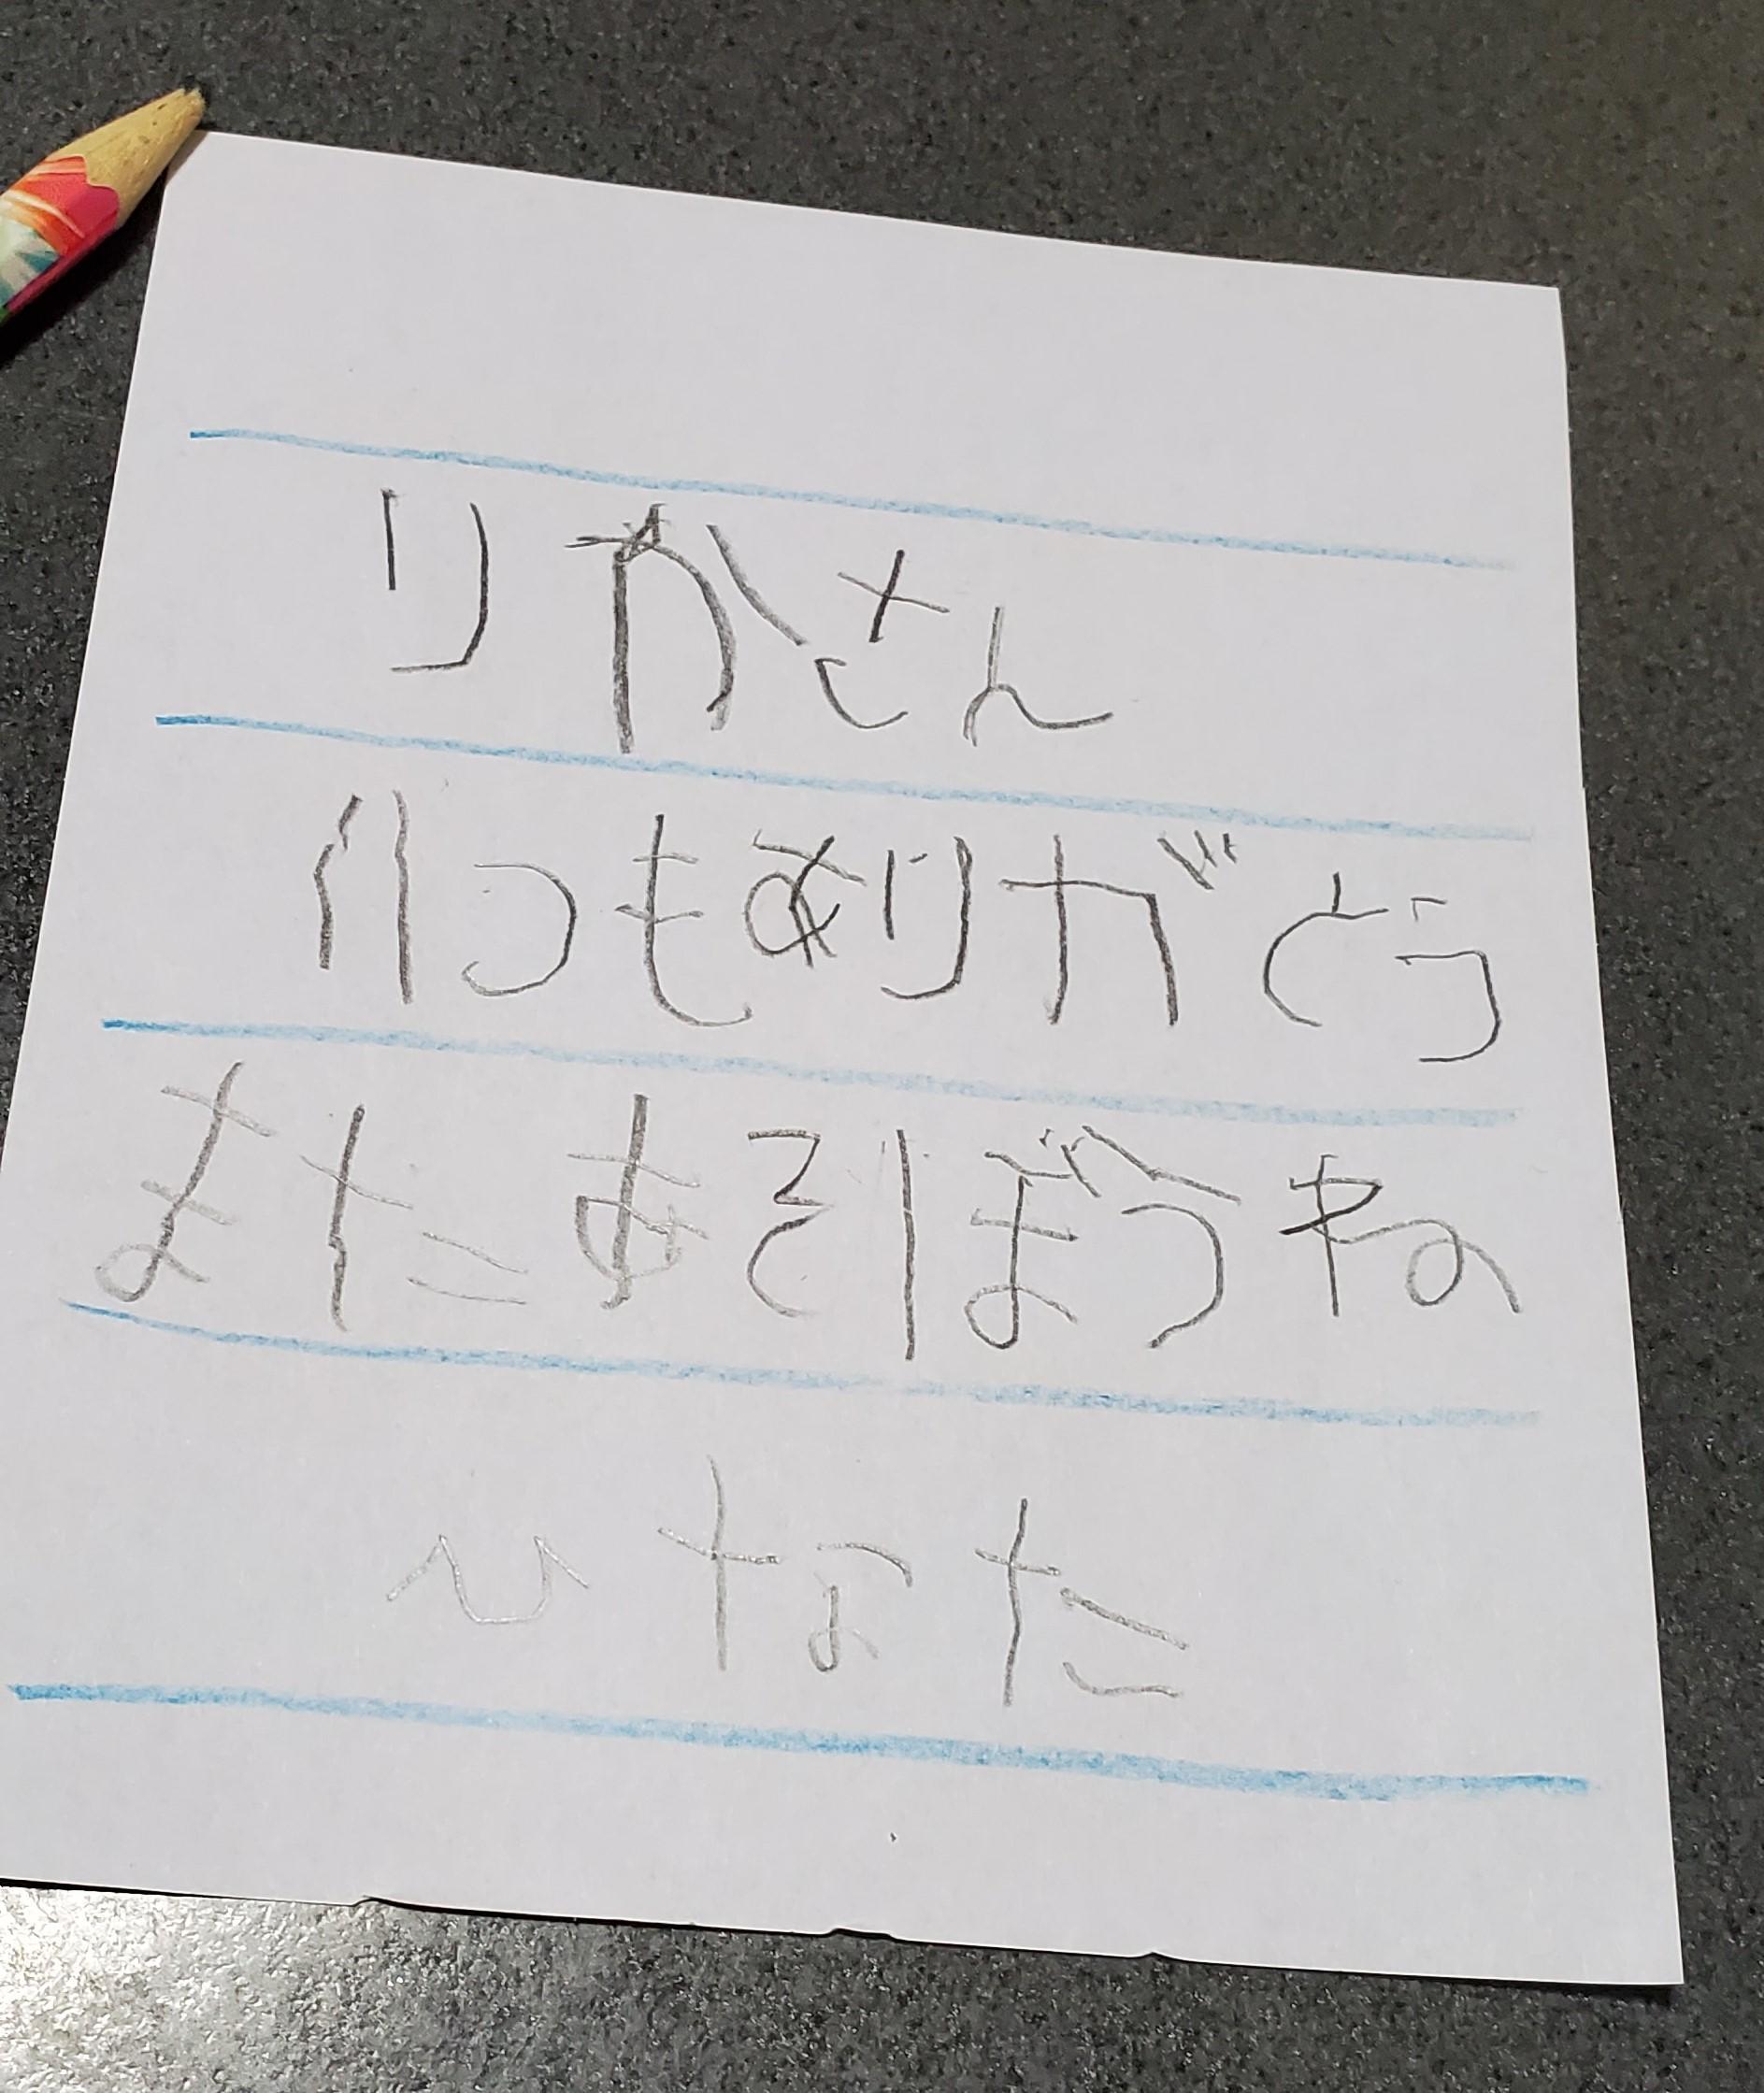 りかさん
いつもありがとう
またあそぼうね
ひなた